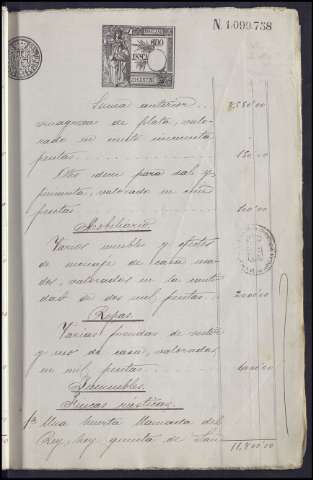 N. 1.099.738
Suma anterior
vinagrera de plata, valo-
rado en ciento cincuenta
pesetas 150'00
Otro idem para sal y
pimienta, valorado en cien
pesetas 100'00
Mobiliario
Varios muebles y efectos
de menage de casa usa-
dos, valorados en la canti-
dad de dos mil pesetas. 2000'00
Ropas.
Varias prendas de vestir
y uso de casa, valoradas
en mil pesetas
Inmuebles.
Fincas rústicas.
Una huerta llamada del
Rey, hoy quinta de San